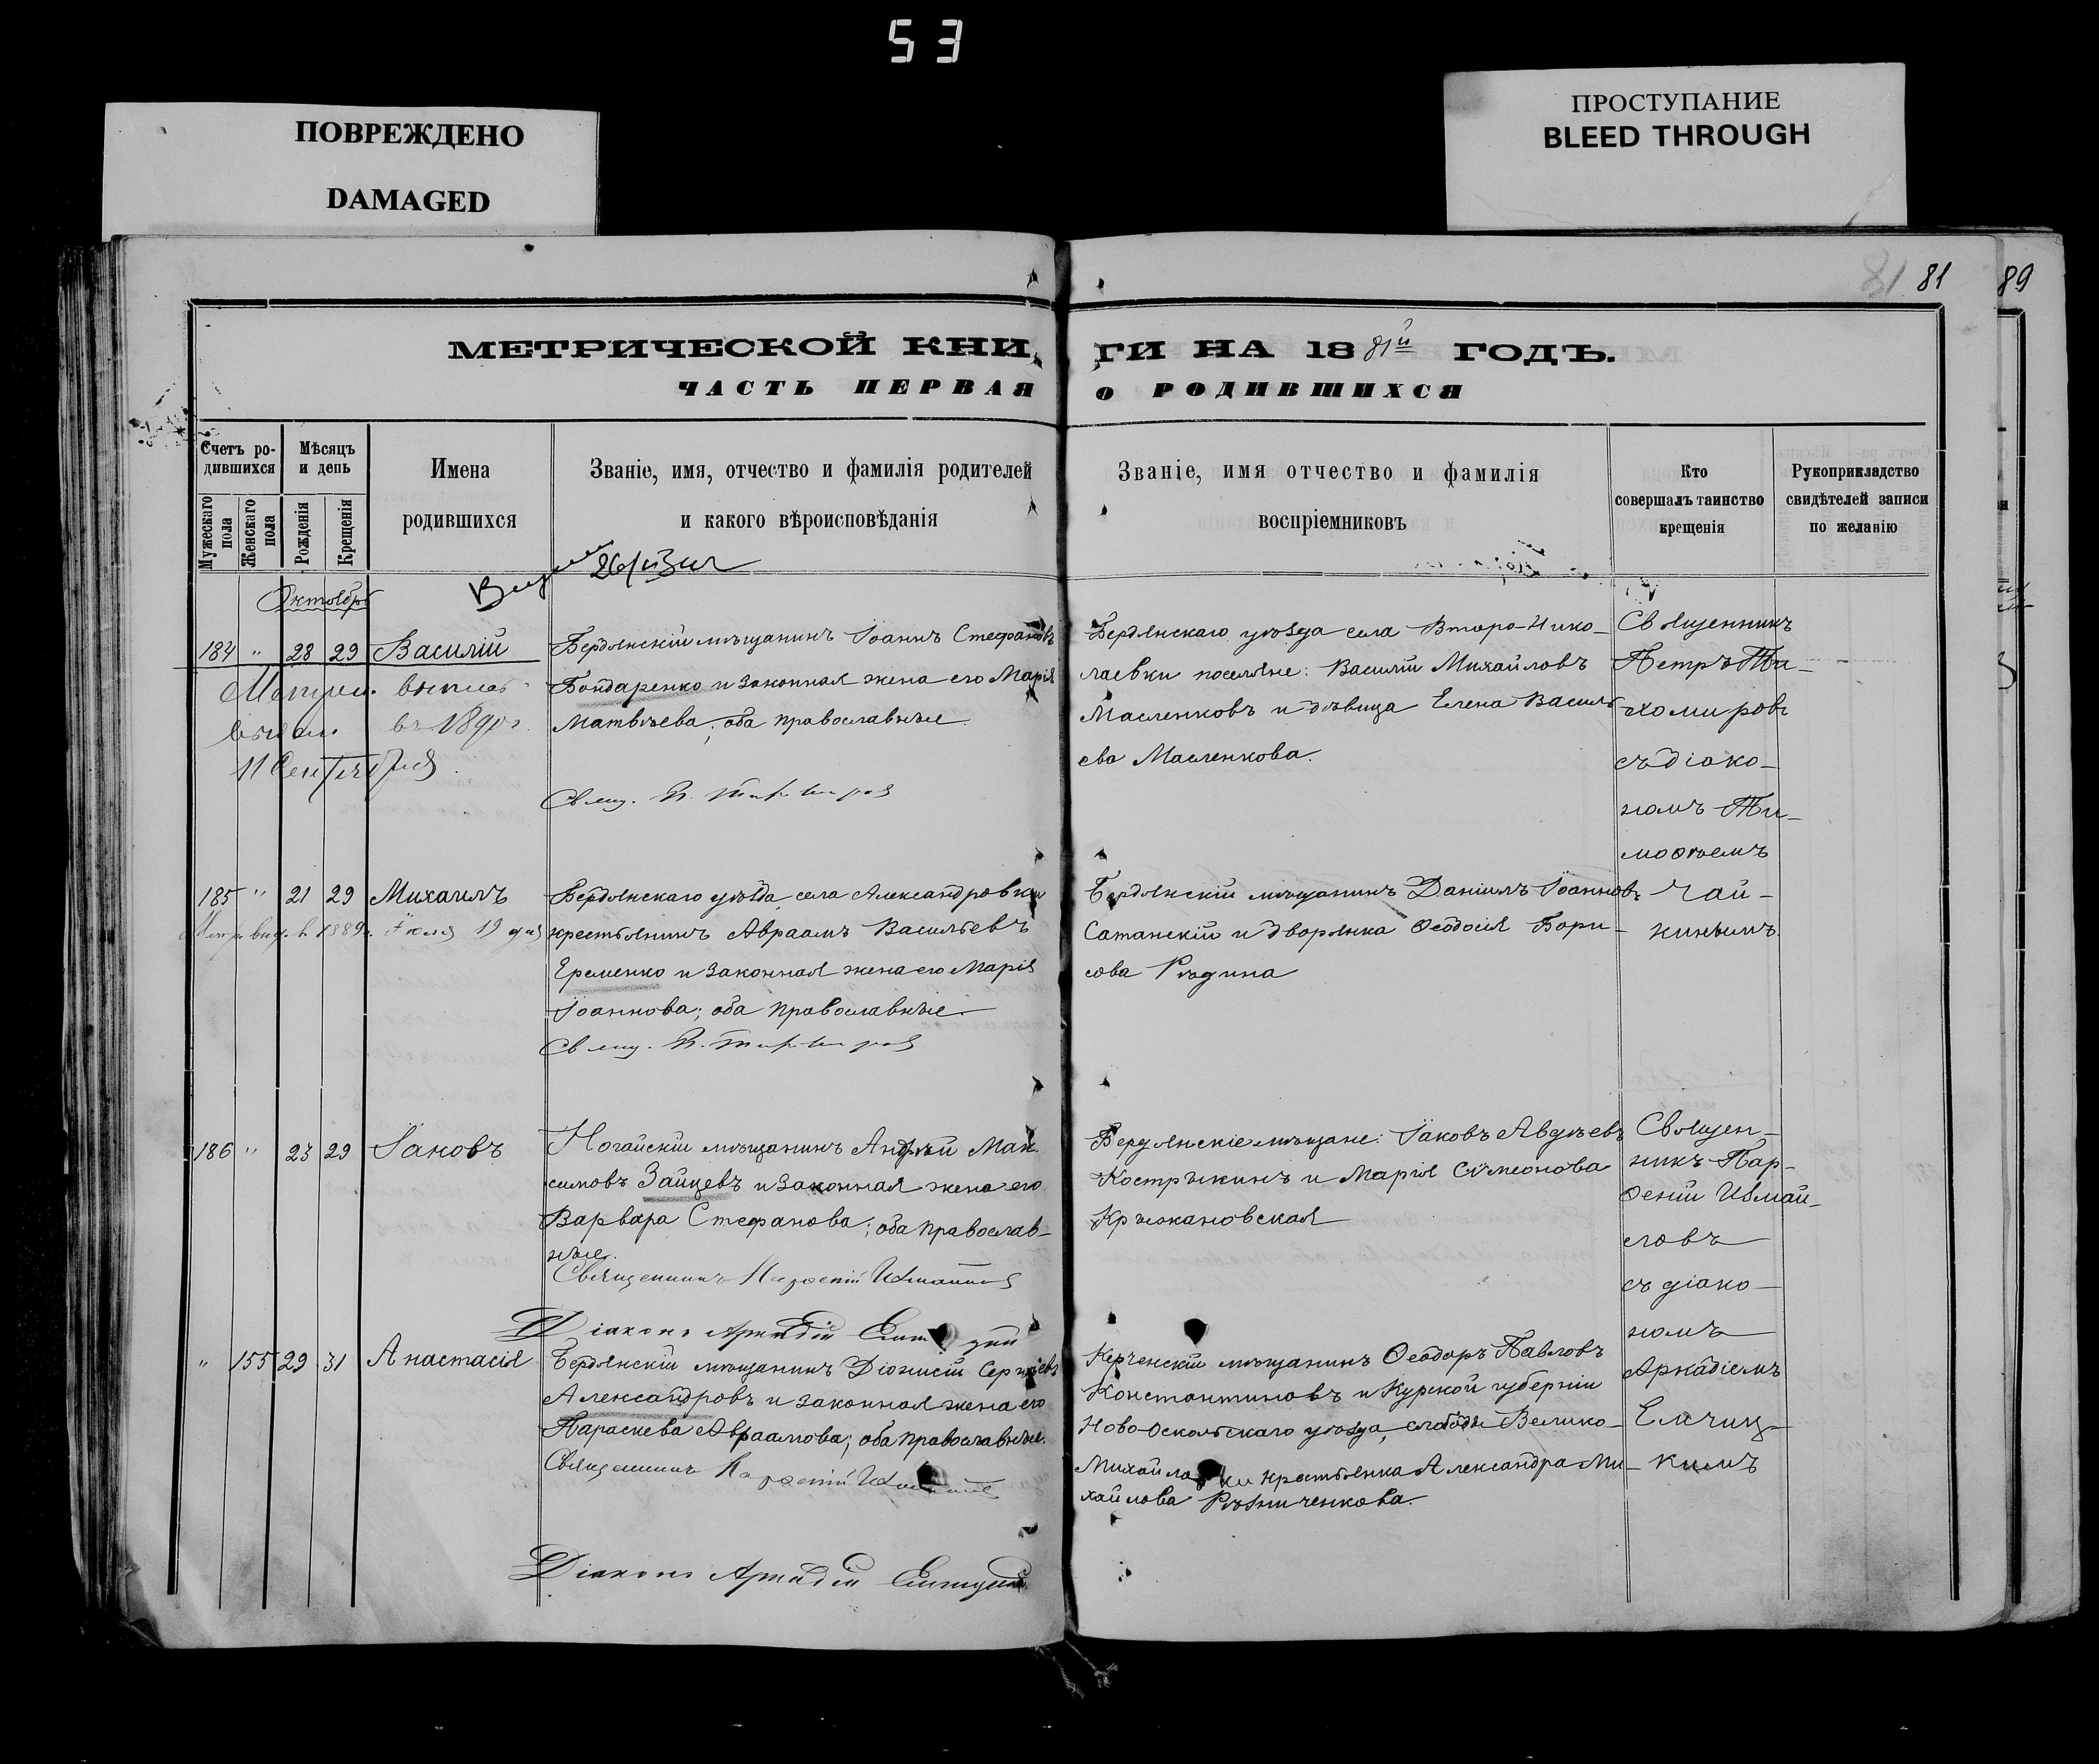 53
ПОВРЕЖДЕНО
DAMAGED
ПРОСТУПАНИЕ
BLEED THROUGH
81 81 89
МЕТРИЧЕСКОЙ КНИ
ГИ НА 1881й ГОДЪ.
ЧАСТЬ ПЕРВАЯ
О РОДИВШИХСЯ
Счетъ ро-
дившихся
Мужескаго пола
Женскаго пола
Мѣсяцъ
и день
Рожденія
Крещенія
Имена
родившихся
Званіе, имя, отчество и фамилія родителей
и какого вѣроисповѣданія
Званіе, имя отчество и фамилія
воспріемниковъ
Кто
совершалъ таинство
крещенія
Рукоприкладство
свидѣтелей записи
по желанію
Октябрь
184 " 28 29 Василій
въ 1890 г.
11 Сентября
Бердянскій мѣщанинъ Іоаннъ Стефановъ
Бондаренко и законная жена его Марія
Матвѣева; оба православные.
Свящ. П. Тихомировъ
Бердянскаго уѣзда села Второ-Нико-
лаевки поселяне: Василій Михайловъ
Масленковъ и дѣвица Елена Василь-
ева Масленкова.
Священникъ
Петръ Ти-
хомировъ
съ діако-
номъ Ти-
моѳеемъ
Чай-
кинымъ.
185 " 21 29 Михаилъ
1889 г. 19 дня
Бердянскаго уѣзда, села Александровки
крестьянинъ Авраамъ Васильевъ
Еременко и законная жена его Марія
Іоаннова; оба православные.
Свящ. П. Тихомировъ
Бердянскій мѣщанинъ Даніилъ Іоанновъ
Сатанскій и дворянка Ѳеодосія Бори-
сова Рѣдина
186 " 23 29 Іаковъ
Ногайскій мѣщанинъ Андрей Мак-
симовъ Зайцевъ и законная жена его
Варвара Стефанова; оба православ-
ные.
Священникъ Парѳеній Измайловъ
Діаконъ Аркадій
Бердянскіе мѣщане: Іаковъ Авдѣевъ
Кострыкинъ и Марія Сѵмеонова
Крыжановская
Священ-
никъ Пар-
ѳеній Измай-
ловъ
съ діако-
номъ
Аркадіемъ
Елчиц-
кимъ
" 155 29 31 Анастасія
Бердянскій мѣщанинъ Діонисій Сергѣевъ
Александровъ и законная жена его
Параскева Авраамова; оба православные.
Священникъ Парѳеній Измайловъ
Діаконъ Аркадій Елчицкій
Керченскій мѣщанинъ Ѳеодоръ Павловъ
Константиновъ и Курской губерніи
Ново-Оскольскаго уѣзда, слободы Велико-
Михайловки крестьянка Александра Ми-
хайлова Рѣзниченкова.